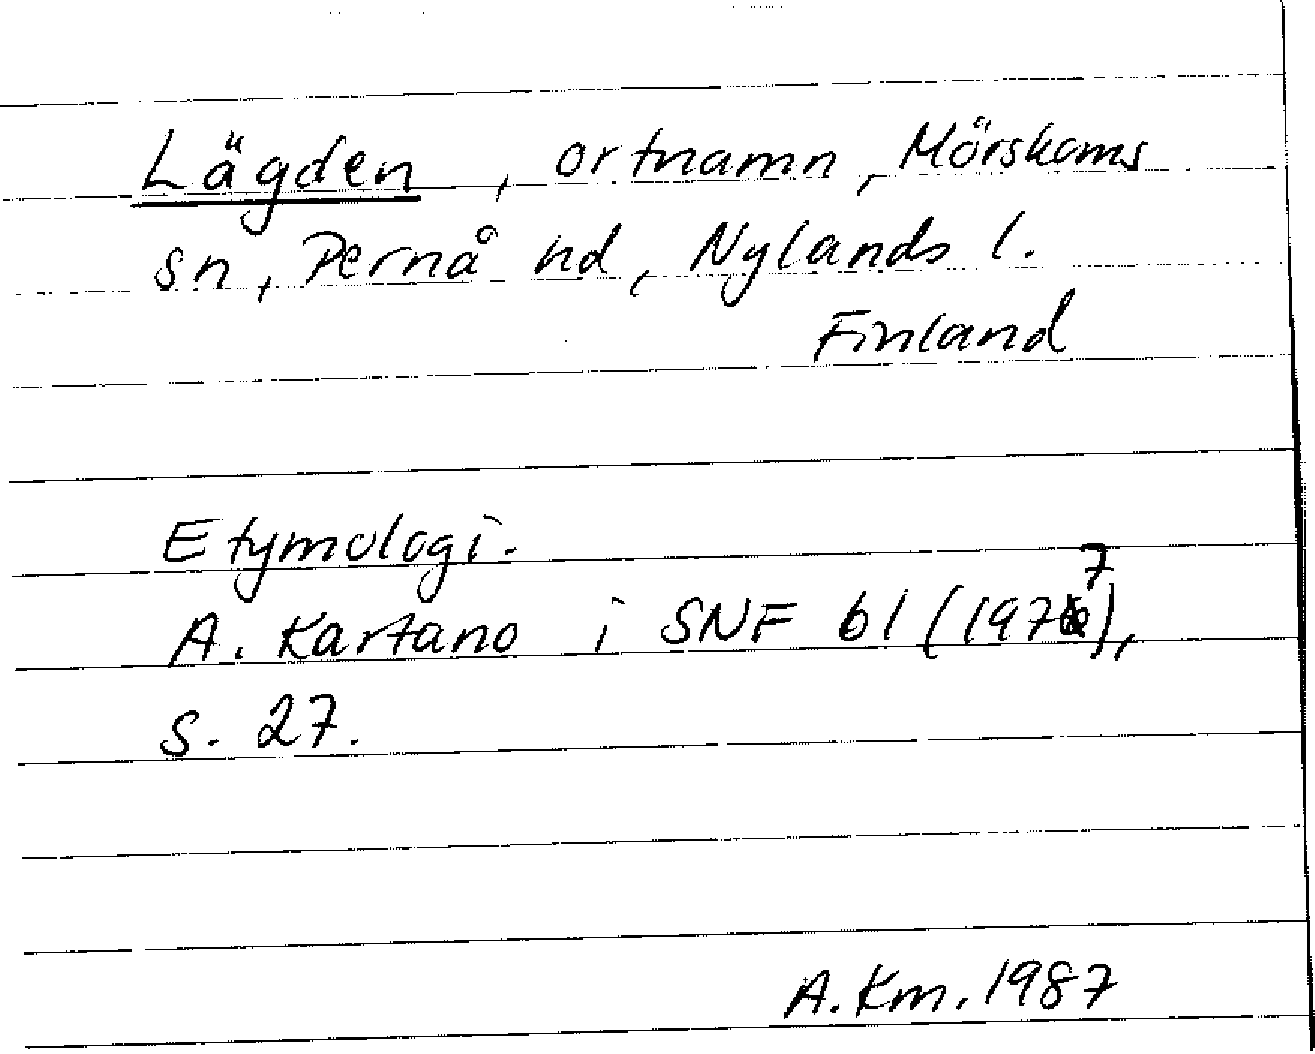 Lägden, ortnamn, Mörskoms
sn, Pernå hd, Nylands l.
Finland
Etymologi.
A. Kartano i SNF 61 (1977),
s. 27.
A. Km. 1987